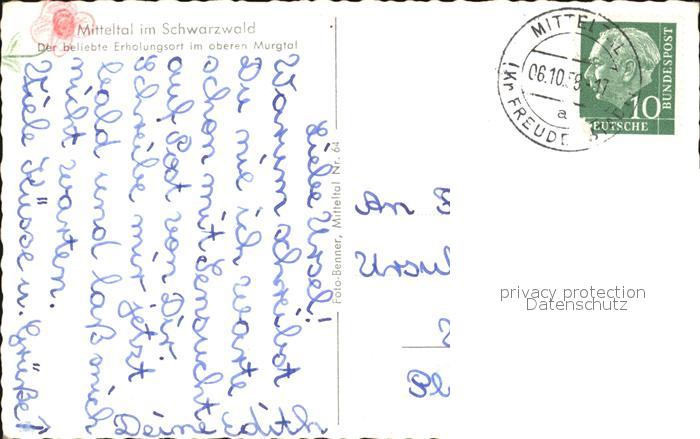 Mitteltal im Schwarzwald
Der beliebte Erholungsort im oberen Murgtal
Liebe Ursel!
Warum schreibst
Du mir ich warte
schon mit Sehnsucht
auf Post von Dir
Schreibe mir jetzt
bald und laß mich
nicht warten.
Viele Küsse u. Grüße!
Deine Edith
Foto-Benner, Mitteltal Nr. 64
MITTELTAL
06.10.58-17
a
(Kr FREUDENSTADT)
10
DEUTSCHE
BUNDESPOST
An
Ursul
Pl
privacy protection
Datenschutz